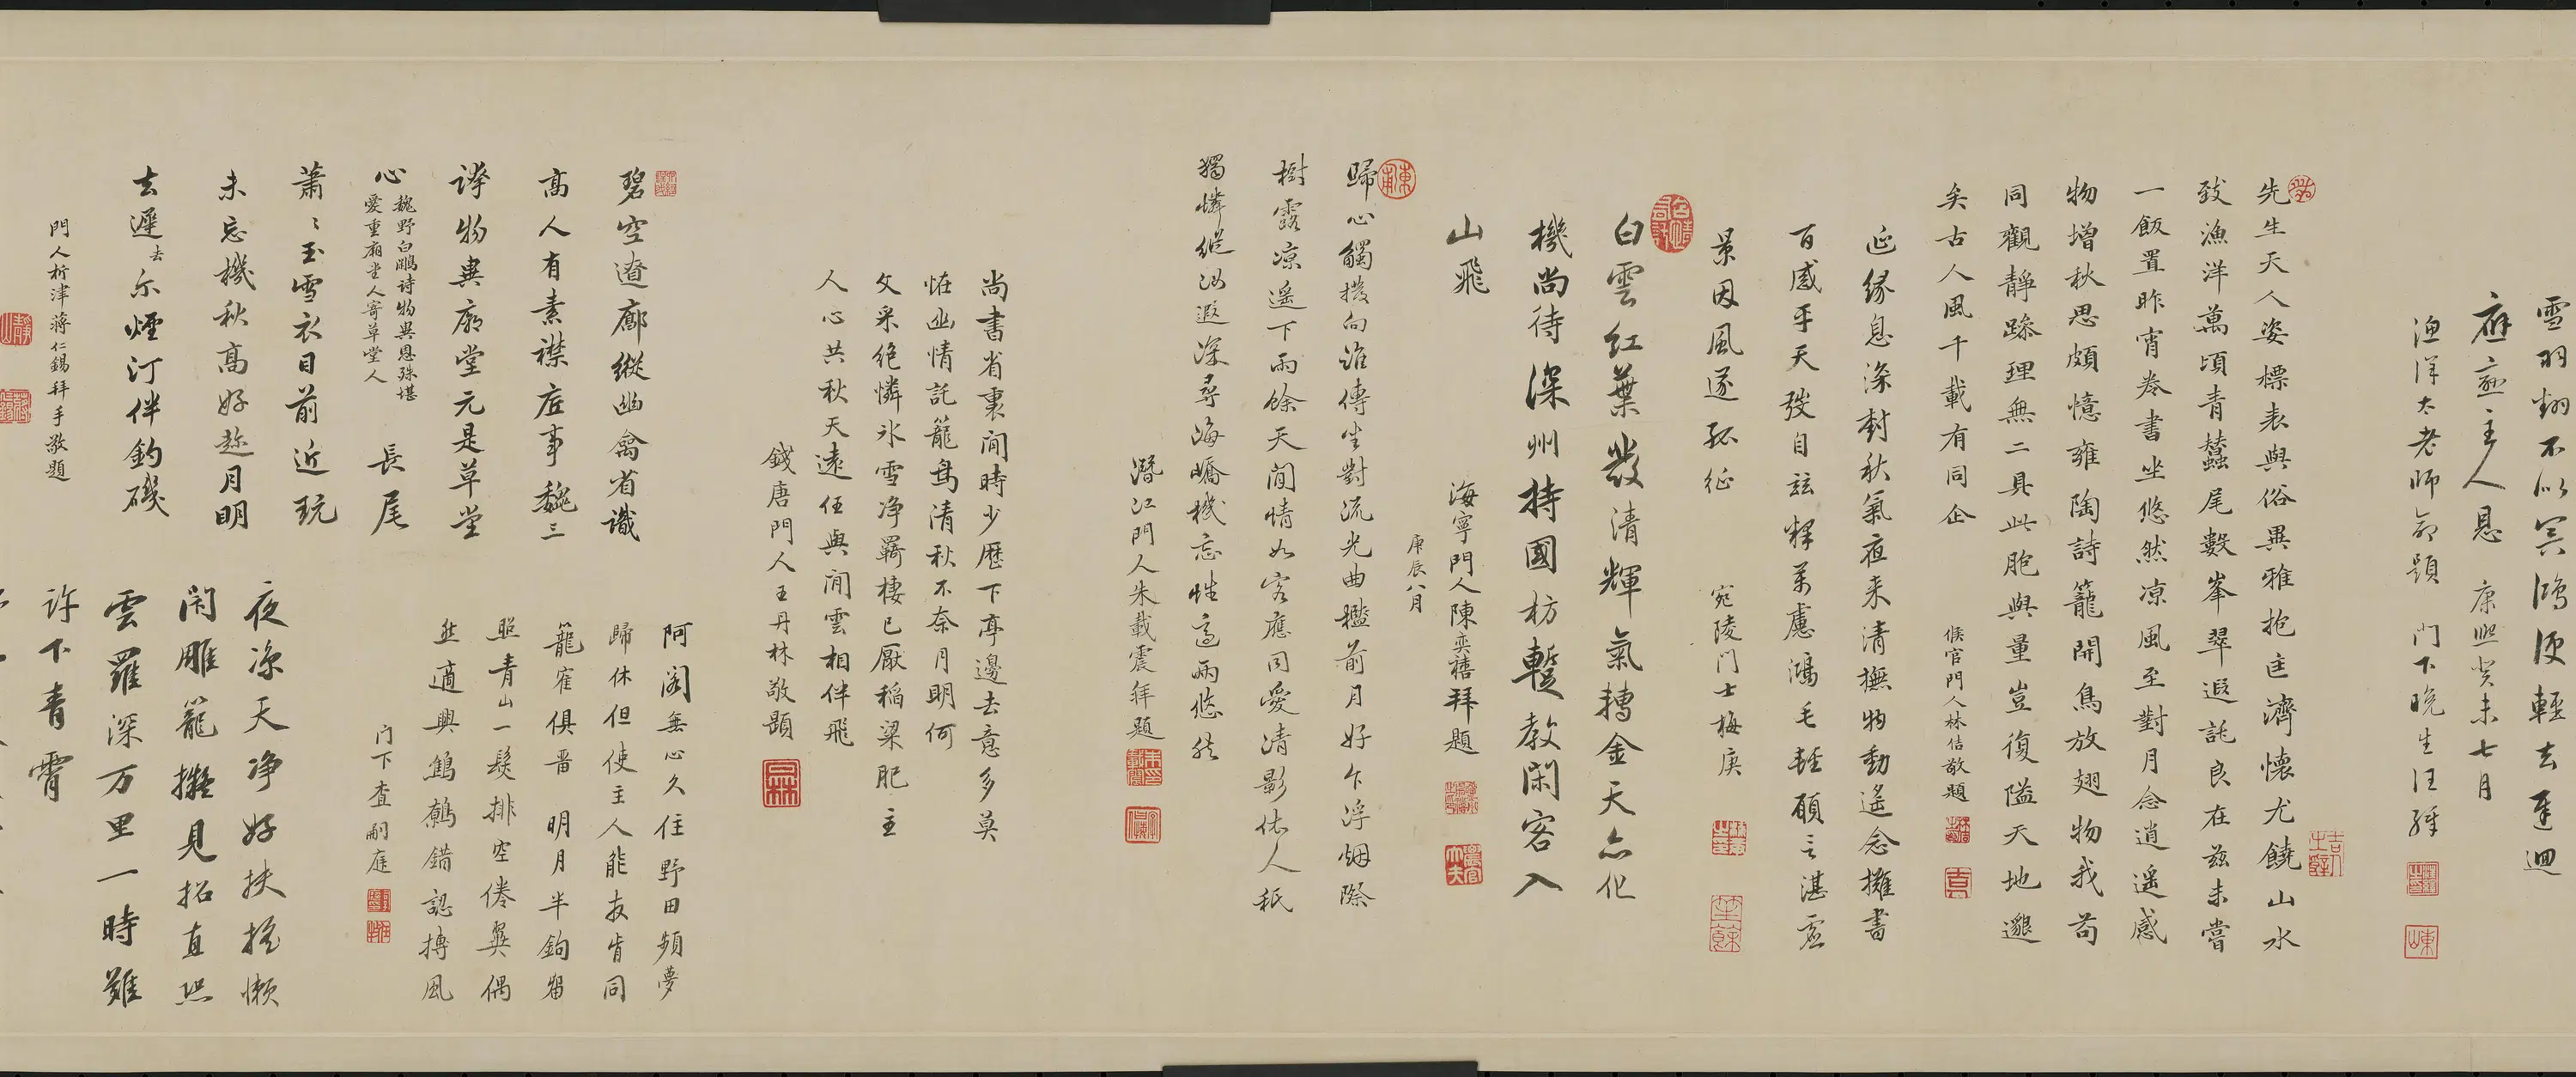 雪羽翻不似冥鴻便輕去更迴
主人恩 康熙癸未七月
漁洋太老師命題 門下晚生汪繹
先生天人姿標表與俗異雅抱匡濟懷尤饒山水
致漁洋萬頃青蠶尾數峯翠遐託良在茲未嘗
一飯置昨宵卷書坐悠然凉風至對月念逍遥感
物增秋思頗憶雍陶詩籠開鳥放翅物我苟
同觀靜躁理無二具此胞與量豈復隘天地邈
矣古人風千載有同企
候官門人林佶敬題
延緣息深樹秋氣夜来清撫物動遙念攤書
百感乎天發自茲釋萬慮鴻毛輕願言湛虛
景因風遂孤征
宛陵門士梅庚
白雲紅葉發清輝氣轉金天忘化
機尚待深州持國枋蹔教閑客入
山飛
海寧門人陳奕禧拜題
庚辰八月
歸心觸撥向誰傳坐對流光曲檻前月好乍浮烟際
樹露凉遙下雨餘天閒情如客應同愛清影依人秖
獨憐縱汝遐深尋海嶠機忘性適兩悠然
潛江門人朱載震拜題
尚書省裏閒時少歷下亭邊去意多莫
怪幽情託籠鳥清秋不奈月明何
文采絶憐氷雪净羇棲已厭稻粱肥主
人心共秋天遠任與閒雲相伴飛
錢唐門人王丹林敬題
碧空遼廓縱幽禽省識
高人有素襟底事魏三
誇物異廊堂元是草堂
心
魏野白鷴诗物異恩殊堪
愛重廟堂人寄草堂人
長尾
蕭〻玉雪衣目前近玩
未忘機秋高好趂月明
去遲去尔煙汀伴釣磯
門人析津蔣仁錫拜手敬題
阿閣無心久住野田頻夢
歸休但使主人能放肯同
籠寉俱畱 明月半鉤畱
照青山一髮排空倦翼偶
然適興鷦鷯錯認摶風
门下查嗣庭
夜凉天净好扶摇懒
閑雕籠擬見招直恐
雲羅深万里一時難
许下青霄